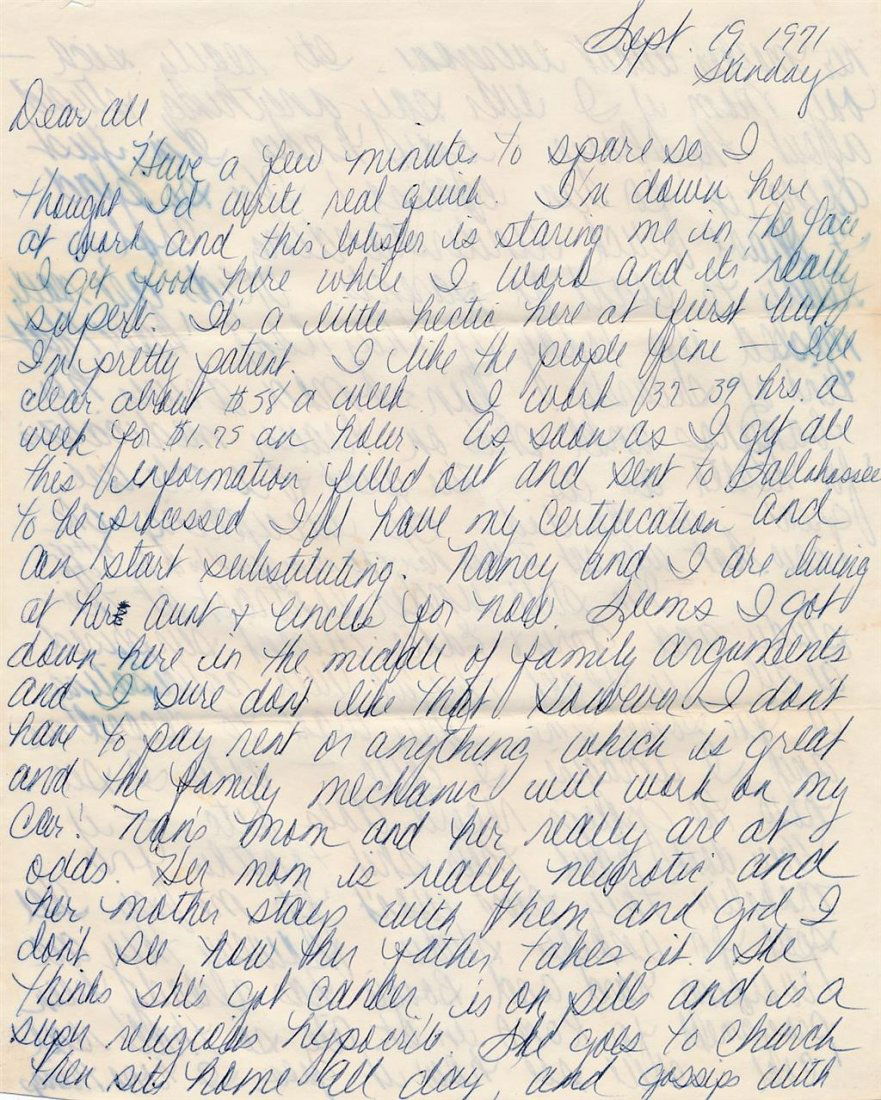 Sept. 19 1971
Sunday
Dear all
Have a few minutes to spare so I
thought I'd write real quick. I'm down here
at work and this lobster is staring me in the face
I get food here while I work and it's really
superb. It's a little hectic here at first but
I'm pretty patient. I like the people fine — I'll
clear about $58 a week. I work 37-39 hrs. a
week for $1.75 an hour. As soon as I get all
this information filled out and sent to Tallahassee
to be processed I'll have my certification and
can start substituting. Nancy and I are living
at her aunt & uncles for now. Seems I got
down here in the middle of family arguments
and I sure don't like that However I don't
have to pay rent or anything which is great
and the family mechanic will work on my
car! Nan's mom and her really are at
odds. Her mom is really neurotic and
her mother stays with them and god I
don't see how her father takes it. She
thinks she's got cancer, is on pills and is a
super religious hypocrite She goes to church
then sits home all day, and gossips with